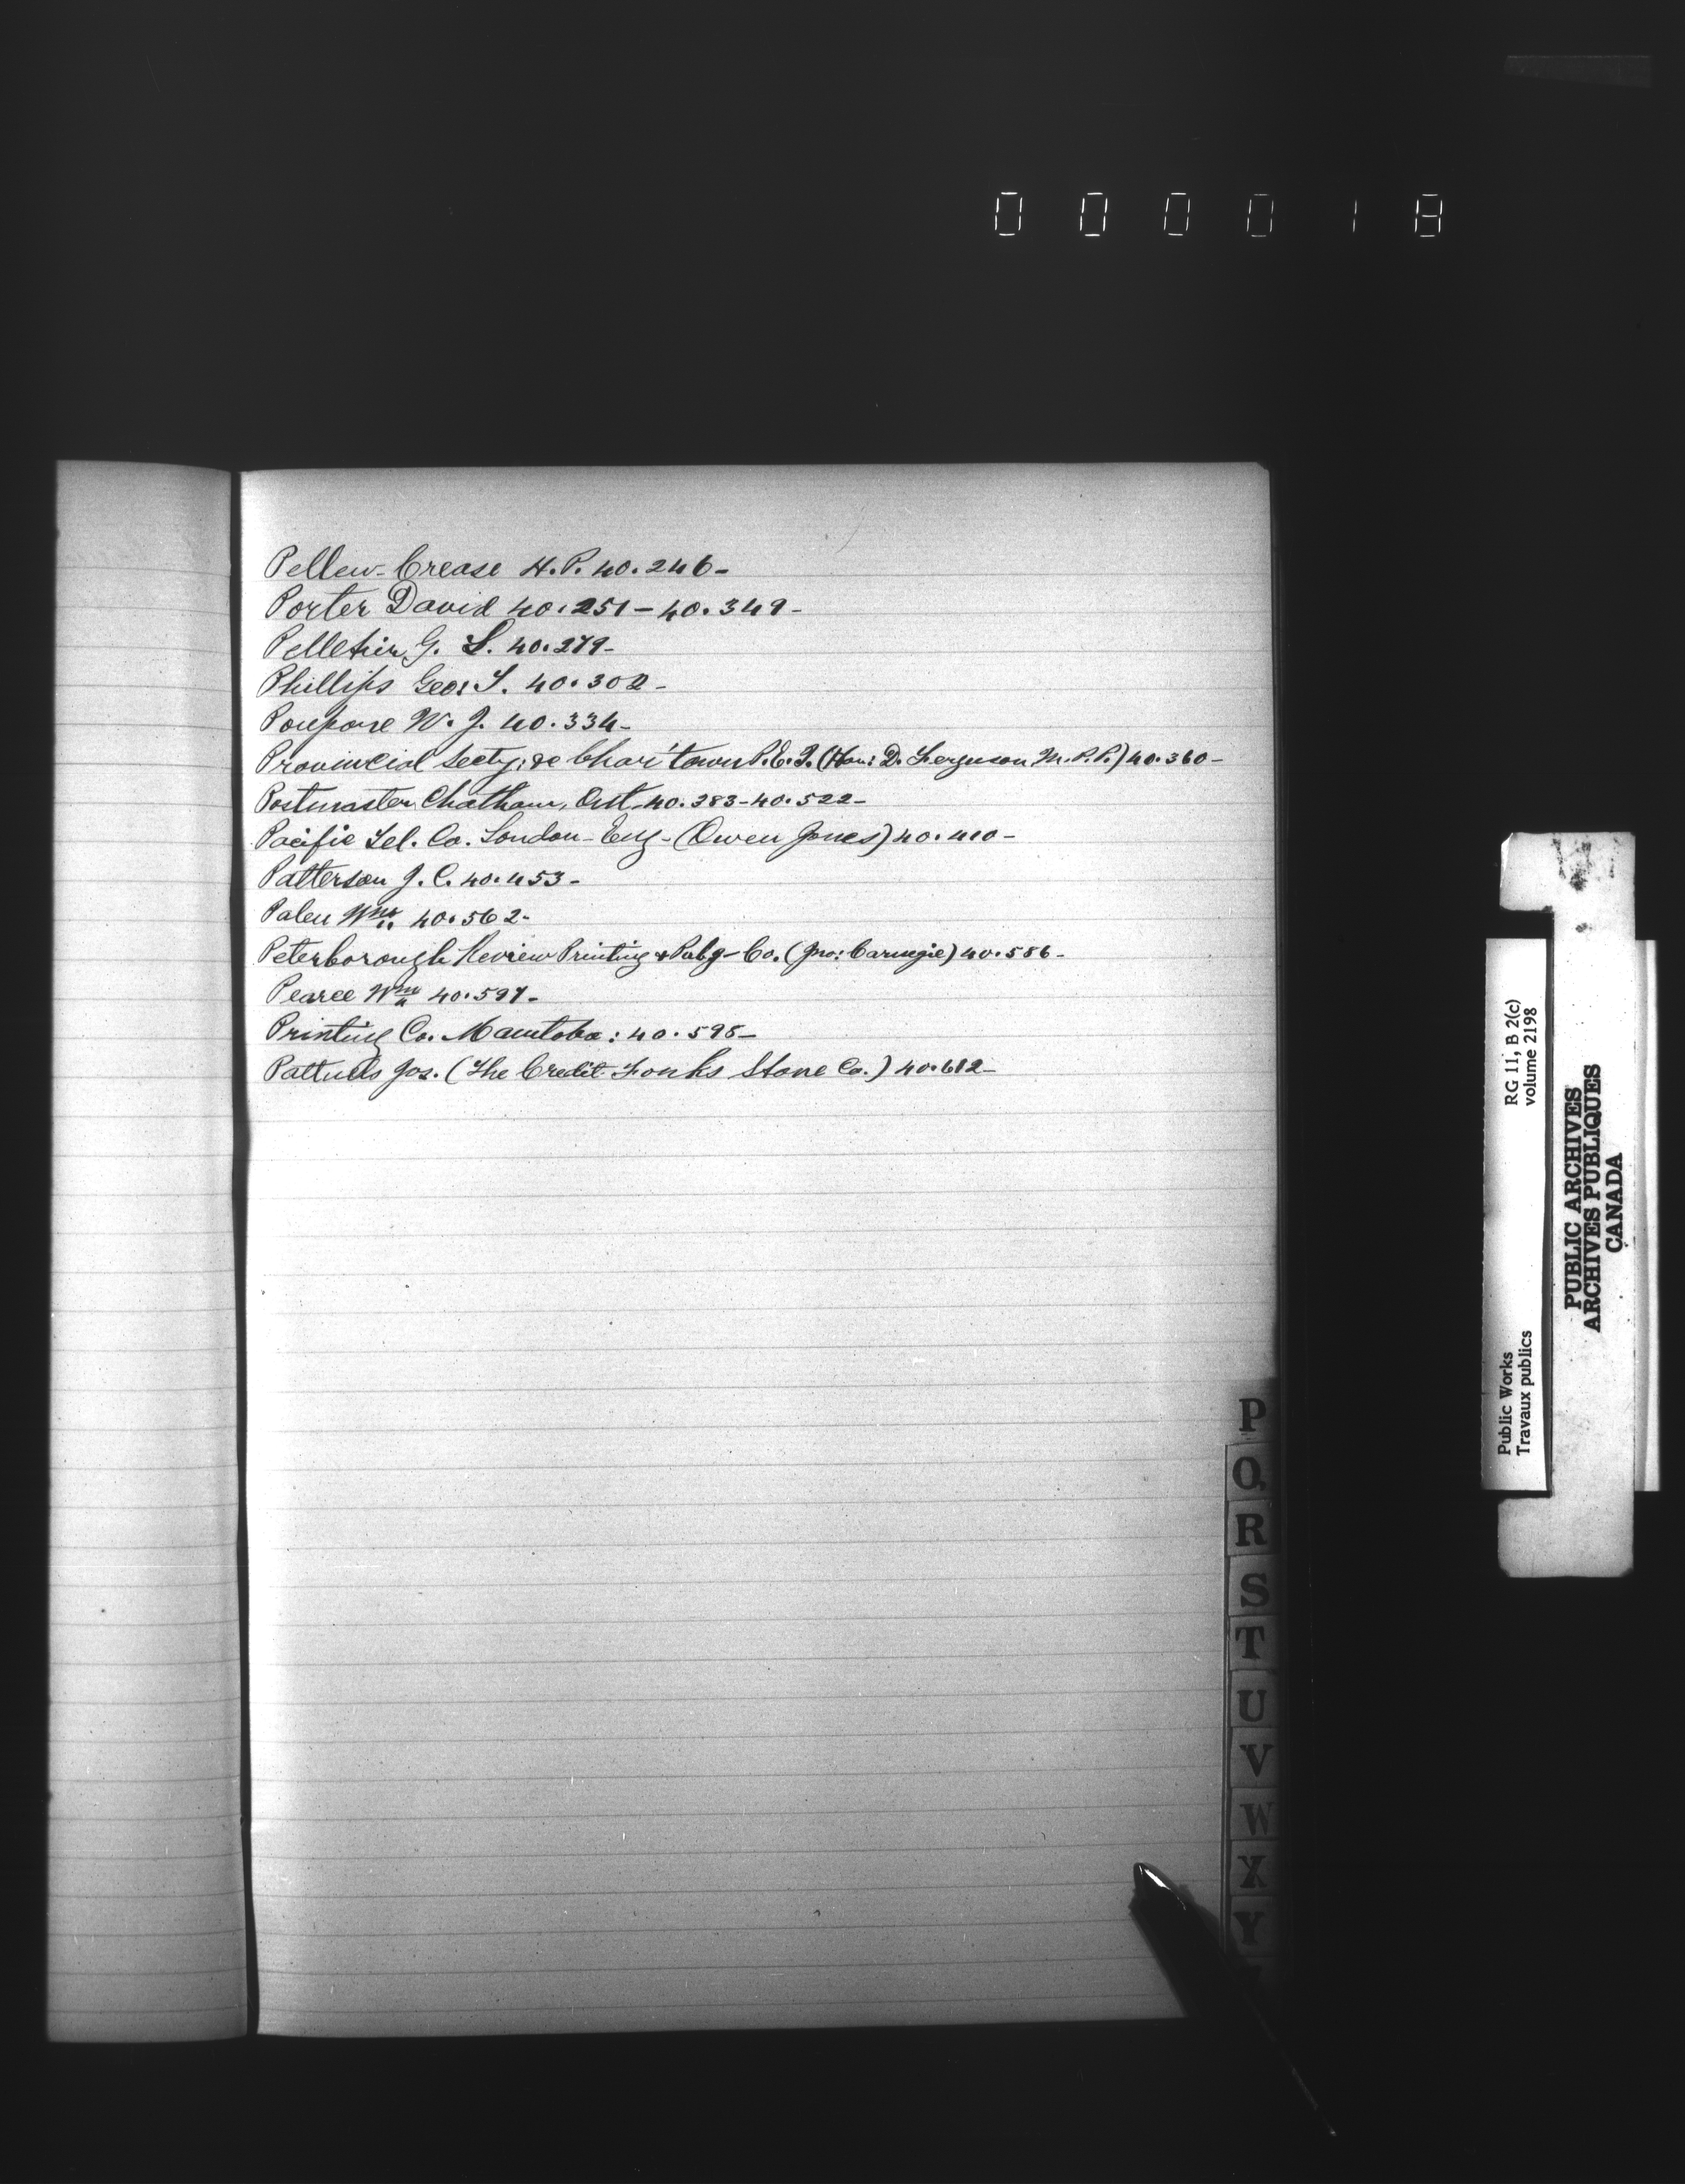 000018
Pellew-Crease H.P. 40.246-
Porter David 40.251-40.349-
Pelletier G. L. 40.279-
Phillips Geo: S. 40.302-
Poupore W. J. 40.334-
Provincial Secty: Char'town P.E.I. (Hon: D. Ferguson M.P.P.) 40.360-
Postmaster Chatham, Ont. 40.383-40.522-
Pacific Tel. Co. London-Eng-(Owen Jones) 40.410-
Patterson J. C. 40.453-
Palen Wm 40.562-
Peterborough Review Printing & Pubg-Co. (Jno: Carnegie) 40.586-
Pearce Wm 40.597-
Printing Co. Manitoba: 40.598-
Jos. (The Credit Forks Stone Co.) 40.612-
P
Q
R
S
T
U
V
W
X
Y
Public Works
Travaux publics
RG 11, B 2(c)
volume 2198
PUBLIC ARCHIVES
ARCHIVES PUBLIQUES
CANADA